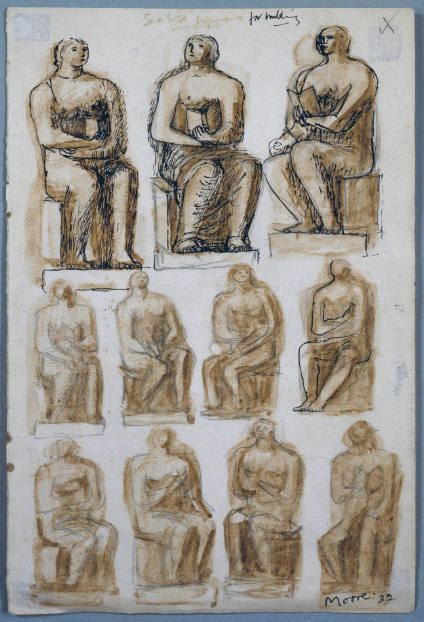 Seated figures for building
X
Moore. 32